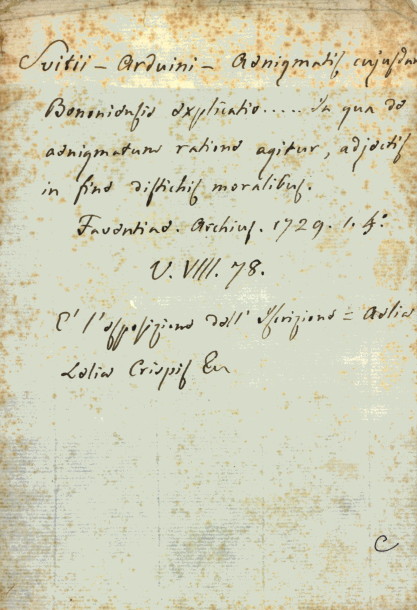 Svitii - Arduini - Aenigmatis cujusdam
Bononiensis explicatio ..... In qua de
aenigmatum ratione agitur, adjectis
in fine distichis moralibus.
Faventiae. Archius. 1729. 1. 4º
V. VIII. 78.
E' l'esposizione dell' Iscrizione = Aelia
Lelia Crispis
C